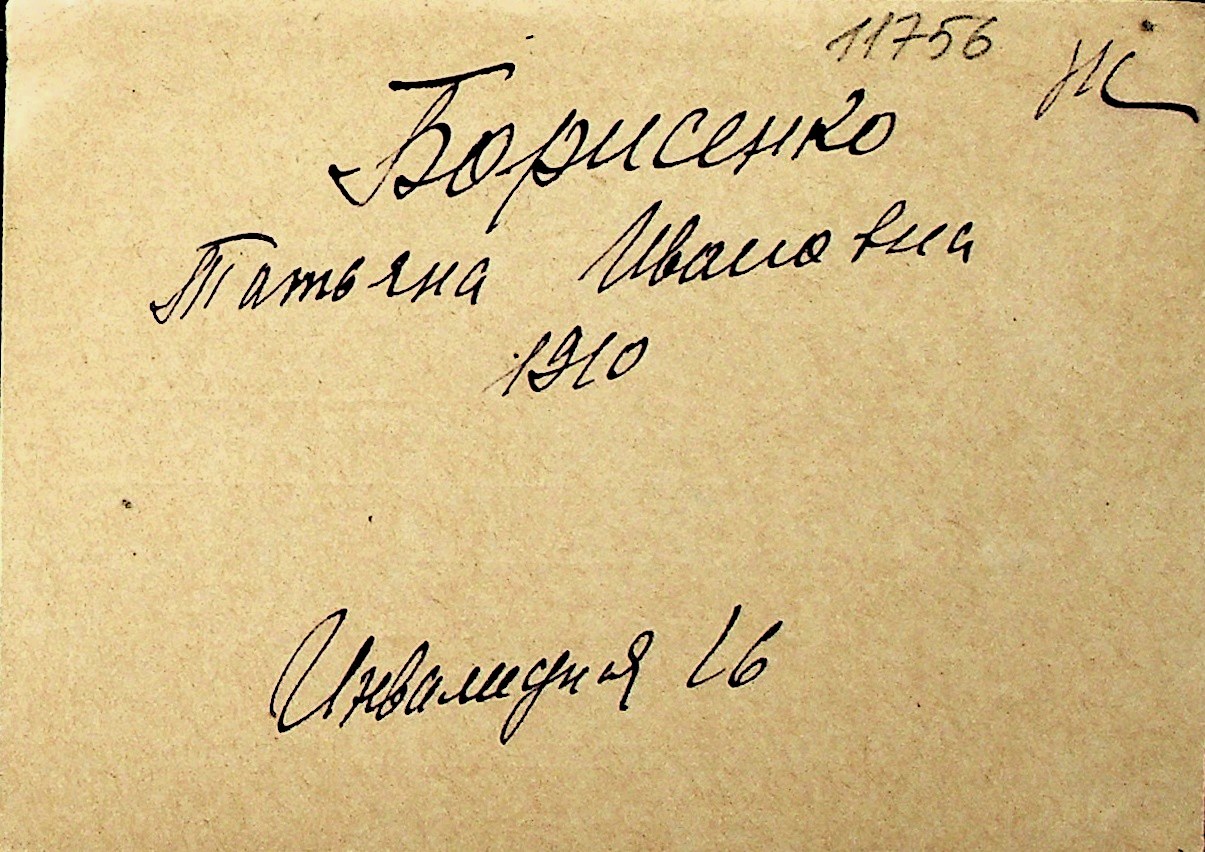 11756
Борисенко
Татьяна Ивановна
1910
Инвалидня 16